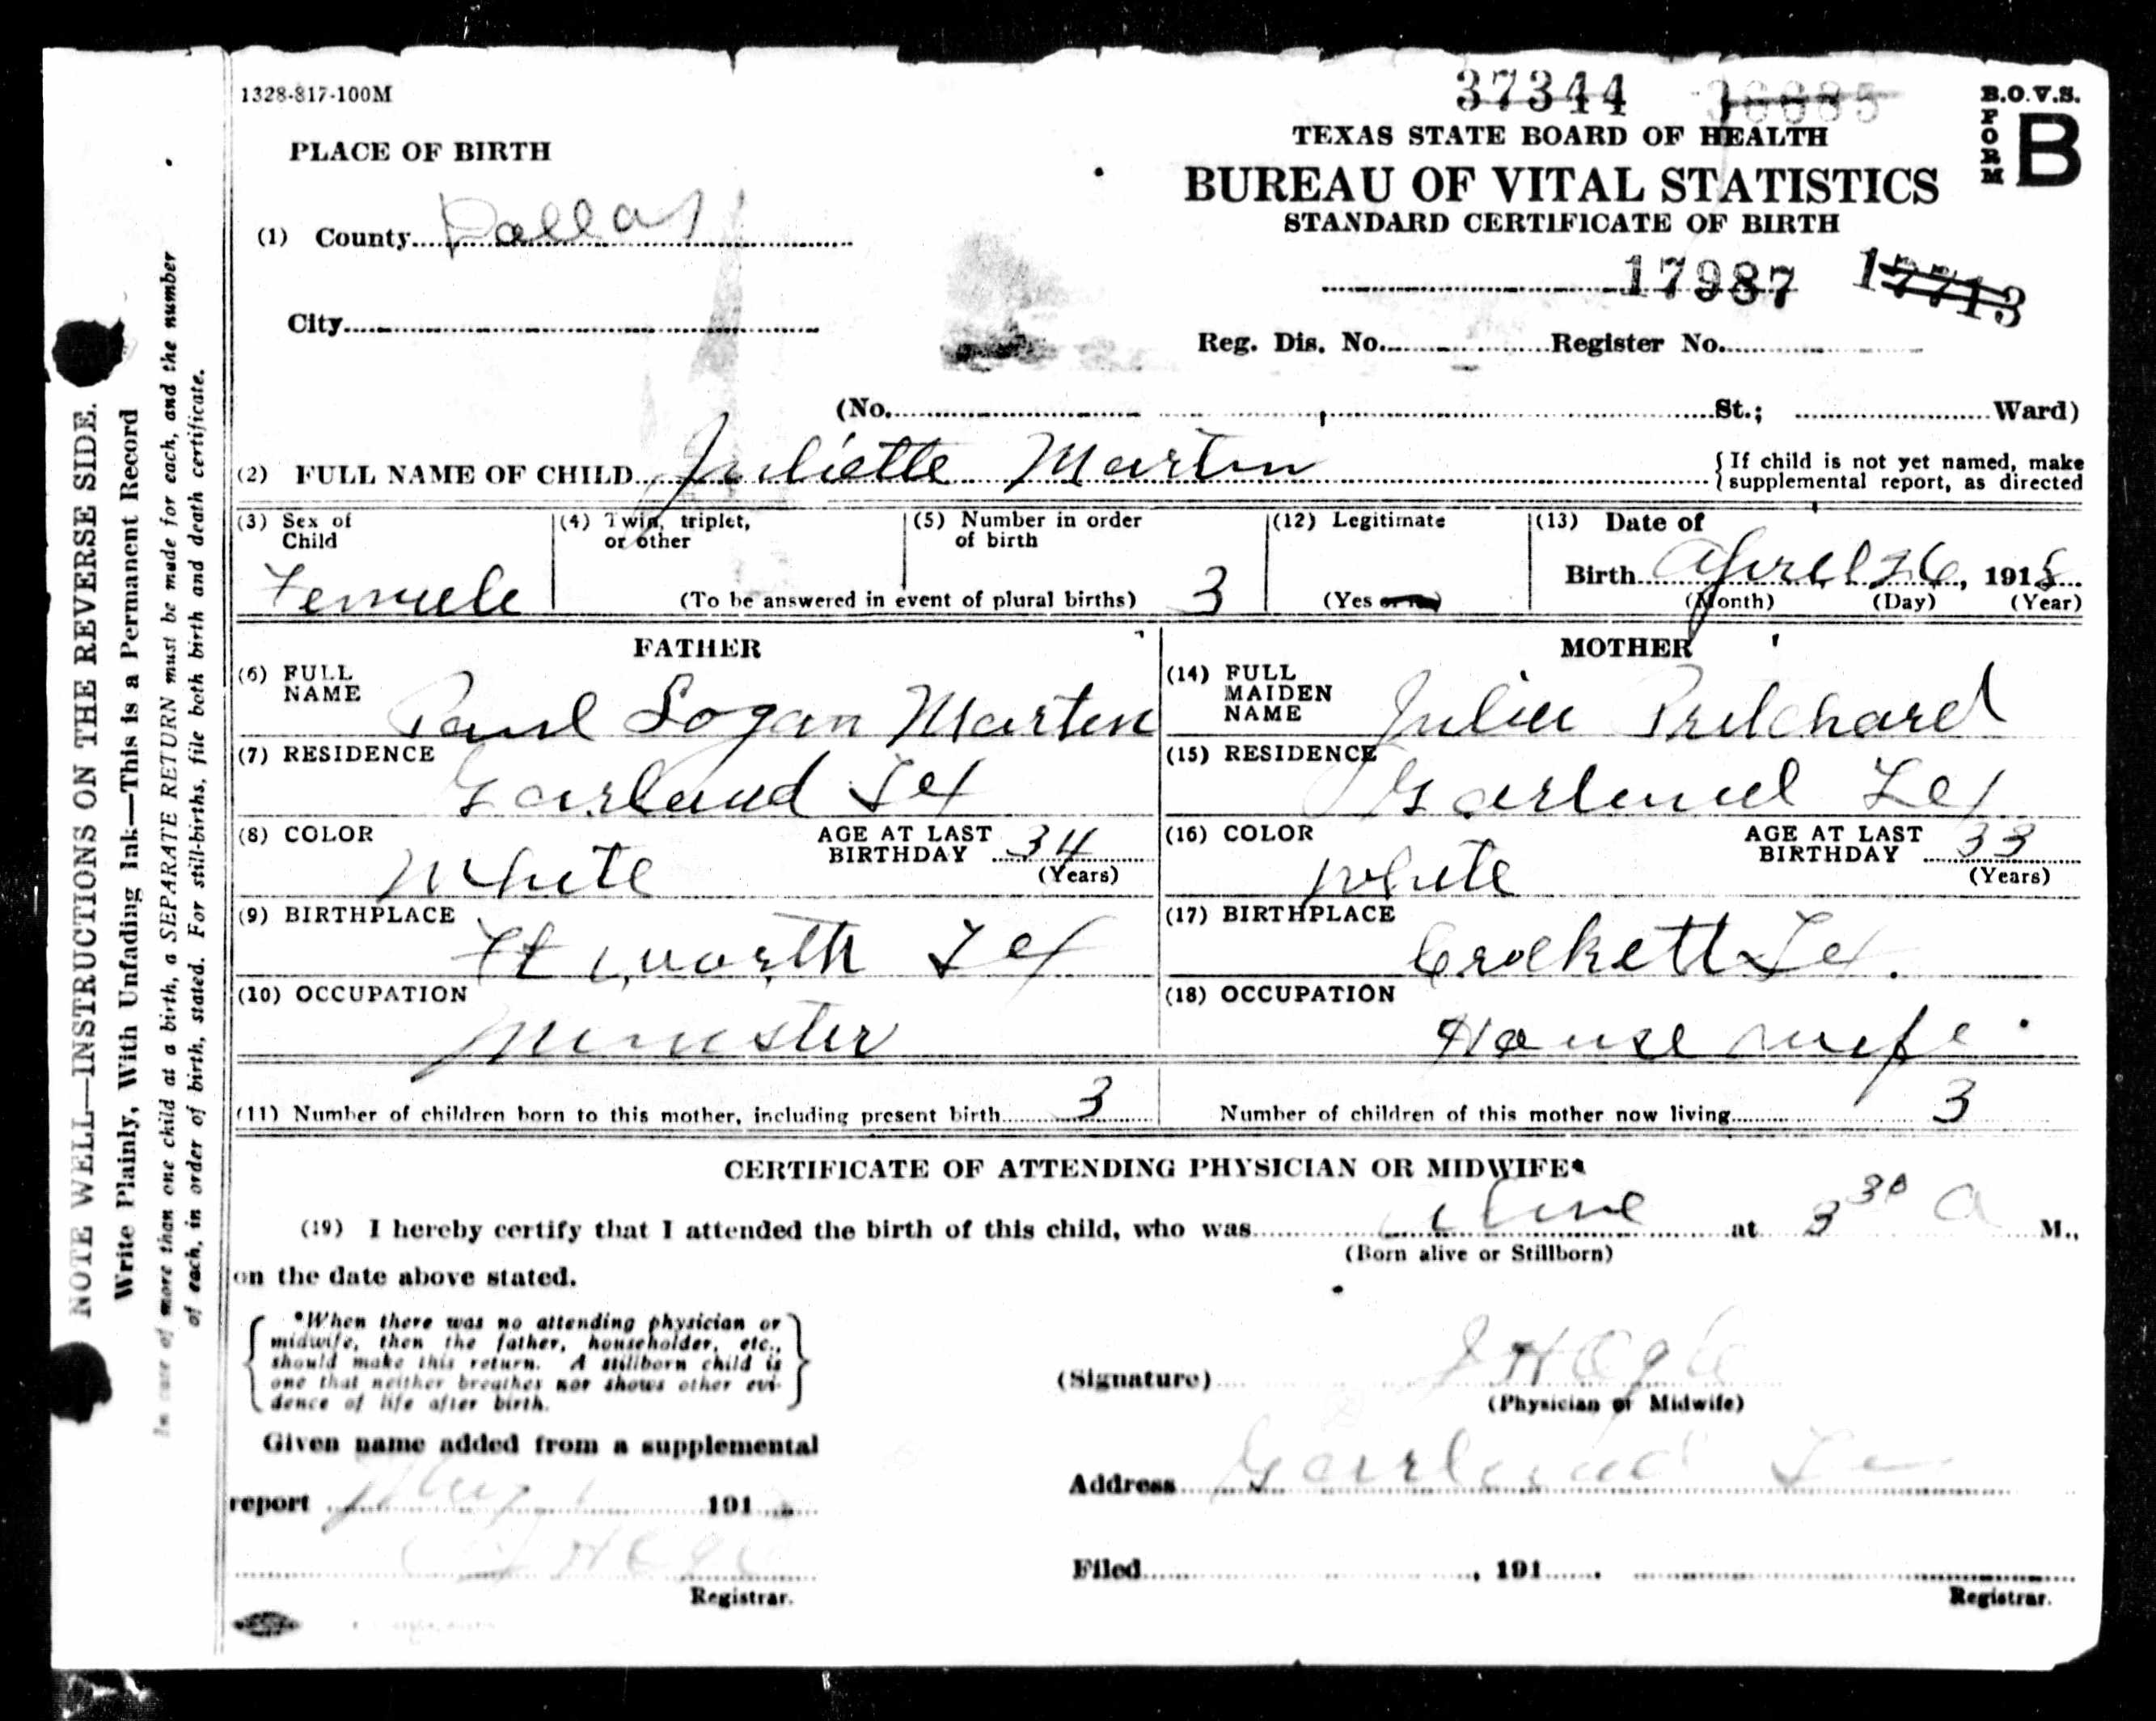 1328-817-100M
37344
B.O.V.S.
FORM
B
TEXAS STATE BOARD OF HEALTH
BUREAU OF VITAL STATISTICS
STANDARD CERTIFICATE OF BIRTH
PLACE OF BIRTH
(1) County Dallas
17987 17713
City
Reg. Dis. No. Register No.
(No. St.; Ward)
(2) FULL NAME OF CHILD Juliette Martin
{If child is not yet named, make
supplemental report, as directed
(3) Sex of Child Female
(4) Twin, triplet, or other
(5) Number in order of birth 3
(To be answered in event of plural births)
(12) Legitimate
(Yes or No)
(13) Date of
Birth April 26, 1918
(Month) (Day) (Year)
FATHER
(6) FULL NAME Paul Logan Martin
(7) RESIDENCE Garland Tex
(8) COLOR White
AGE AT LAST BIRTHDAY 34 (Years)
(9) BIRTHPLACE Ft Worth Tex
(10) OCCUPATION Minister
MOTHER
(14) FULL MAIDEN NAME Julia Pritchard
(15) RESIDENCE Garland Tex
(16) COLOR White
AGE AT LAST BIRTHDAY 33 (Years)
(17) BIRTHPLACE Crockett Tex.
(18) OCCUPATION House wife
(11) Number of children born to this mother, including present birth 3
Number of children of this mother now living 3
CERTIFICATE OF ATTENDING PHYSICIAN OR MIDWIFE*
(19) I hereby certify that I attended the birth of this child, who was alive at 3 30 A M.,
(Born alive or Stillborn)
on the date above stated.
{*When there was no attending physician or
midwife, then the father, householder, etc.,
should make this return. A stillborn child is
one that neither breathes nor shows other evi-
dence of life after birth.}
(Signature)
(Physician or Midwife)
Given name added from a supplemental
Address Garland
report 191
Registrar.
Filed , 191
Registrar.
NOTE WELL—INSTRUCTIONS ON THE REVERSE SIDE.
Write Plainly, With Unfading Ink—This is a Permanent Record
In case of more than one child at a birth, a SEPARATE RETURN must be made for each, and the number
of each, in order of birth, stated. For still-births, file both birth and death certificate.